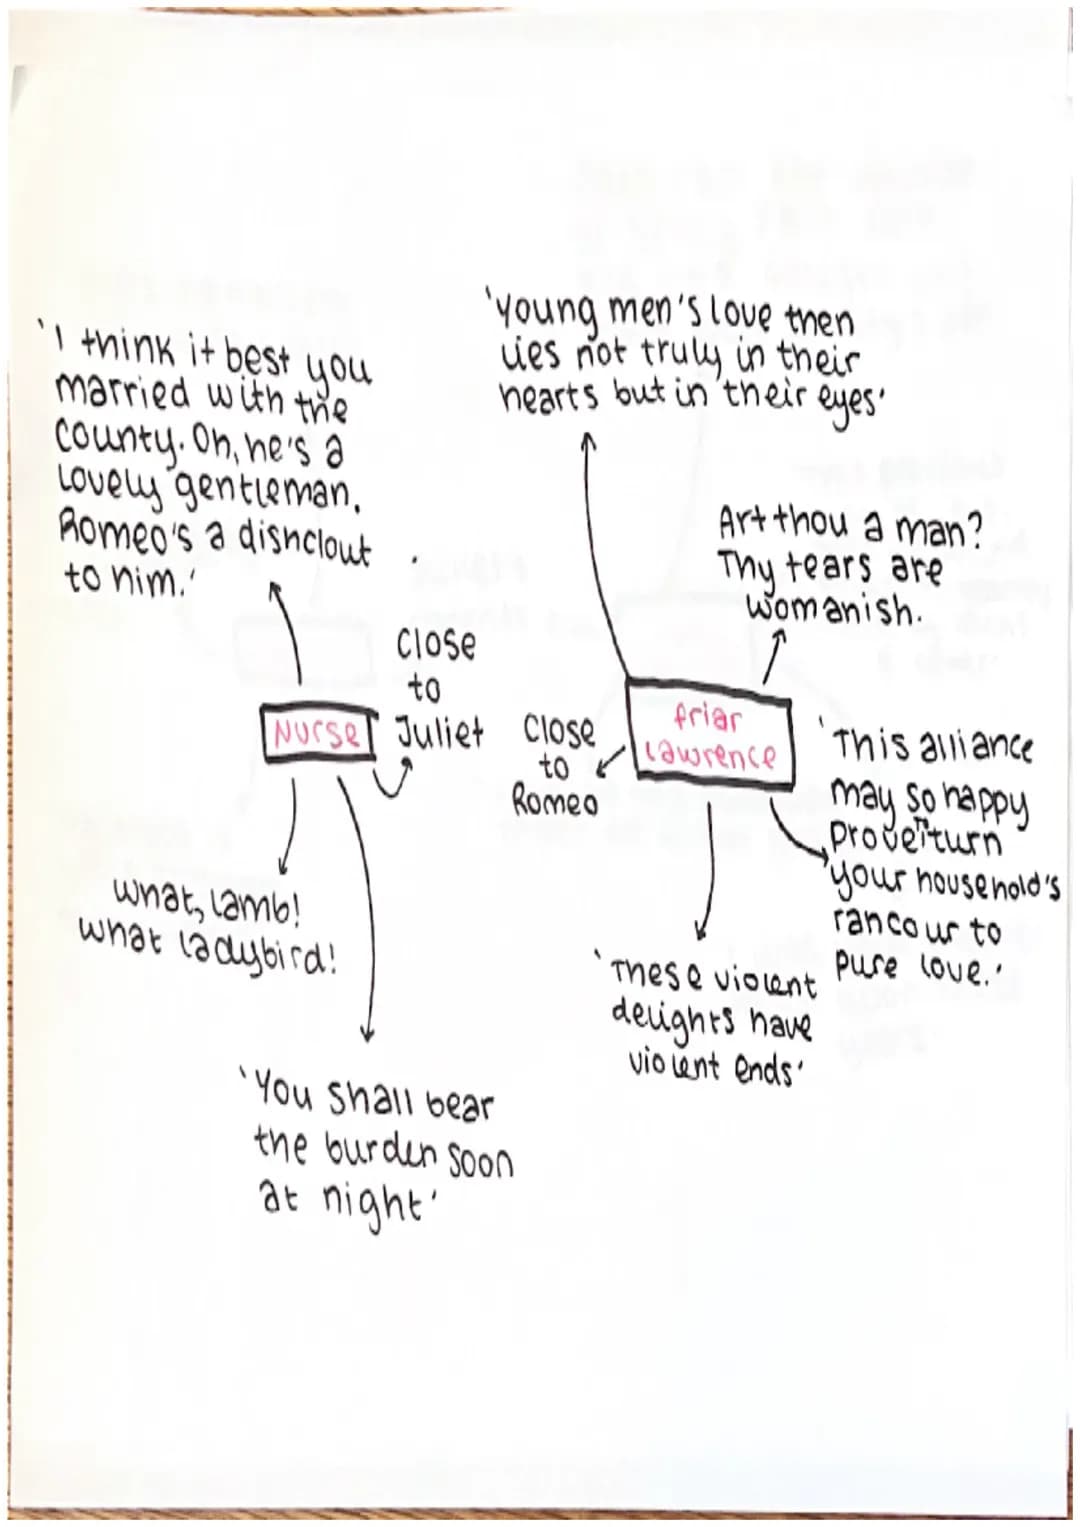 'I think it best you
married with the
county. Oh, he's a
lovely gentleman.
Romeo's a dishclout
to him.'
Close
to
Juliet
Nurse
what, lamb!
what ladybird!
'You shall bear
the burden soon
at night'
'young men's love then
lies not truly in their
hearts but in their eyes'
Art thou a man?
Thy tears are
womanish.
friar
Lawrence
Close
to
Romeo
'This alliance
may so happy
prove turn
your household's
rancour to
pure love.'
'These violent
delights have
violent ends'